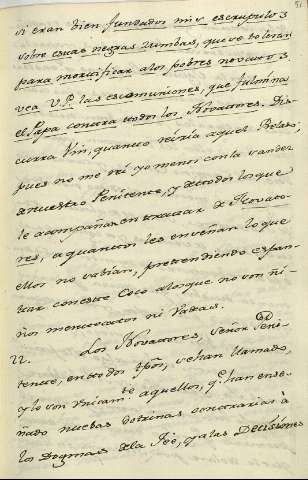 si eran bien fundados mis escrupulos
sobre esas negras zumbas, que se toleran
para mortificar a los pobres novatores
vea V.P. las escomuniones, que fulmina
el Papa contra todos los Novatores. Dis-
curra Vm, quanto reiría aquel
pues no me reí yo menos con la
de nuestro Penitente, y de todos los que
le acompañan en tratar de Novato-
res, a quantos les enseñan lo que
ellos no sabian, pretendiendo espan-
tar con este Coco a los que no son ni-
ños mentecatos ni
22. Los Novatores, Señor Peni-
tente, en todos tpos, se han llamado,
y lo son unicamte aquellos, q.e han ense-
ñado nuebas dotrinas contrarias à
los Dogmas de la Fé, y a las Decisiones